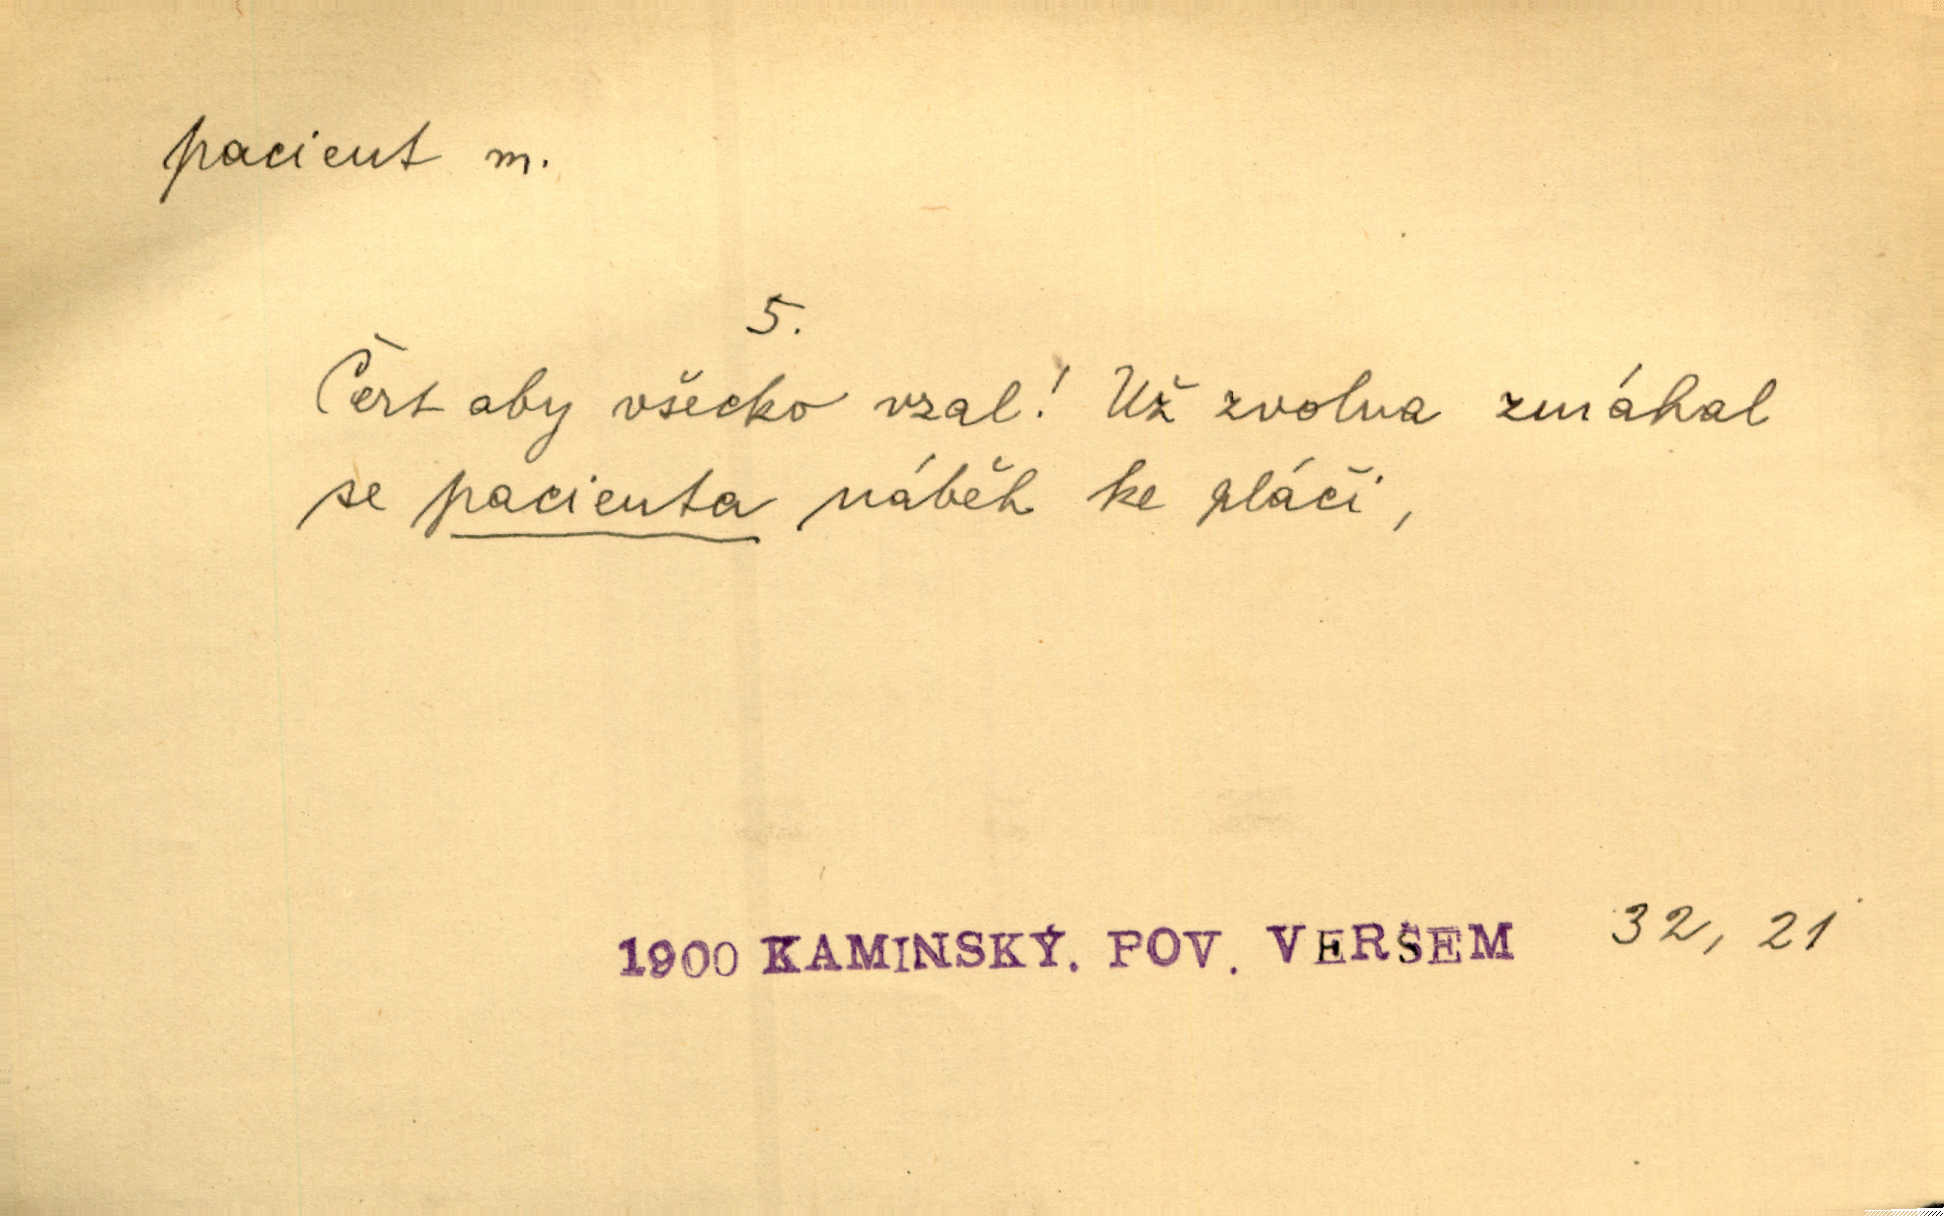 pacient m.
5.
Čert aby všecko vzal! Už zvolna zmáhal
se pacienta náběh ke pláči,
1900 KAMINSKÝ. POV. VERŠEM 32, 21